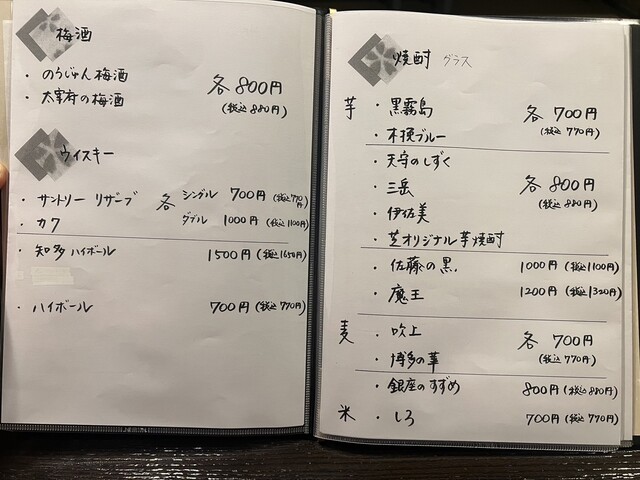 梅酒
・のうじゅん梅酒
・太宰府の梅酒
各800円
(税込880円)
ウイスキー
・サントリー リザーブ 各 シングル 700円(税込770円)
・カク ダブル 1000円(税込1100円)
・知多ハイボール 1500円(税込1650円)
・ハイボール 700円(税込770円)
焼酎 グラス
芋 ・黒霧島 各 700円
・木挽ブルー (税込770円)
・天守のしずく
・三岳 各 800円
・伊佐美 (税込880円)
・芝オリジナル芋焼酎
・佐藤の黒. 1000円(税込1100円)
・魔王 1200円(税込1320円)
麦 ・吹上 各 700円
・博多の華 (税込770円)
・銀座のすずめ 800円(税込880円)
米 ・しろ 700円(税込770円)